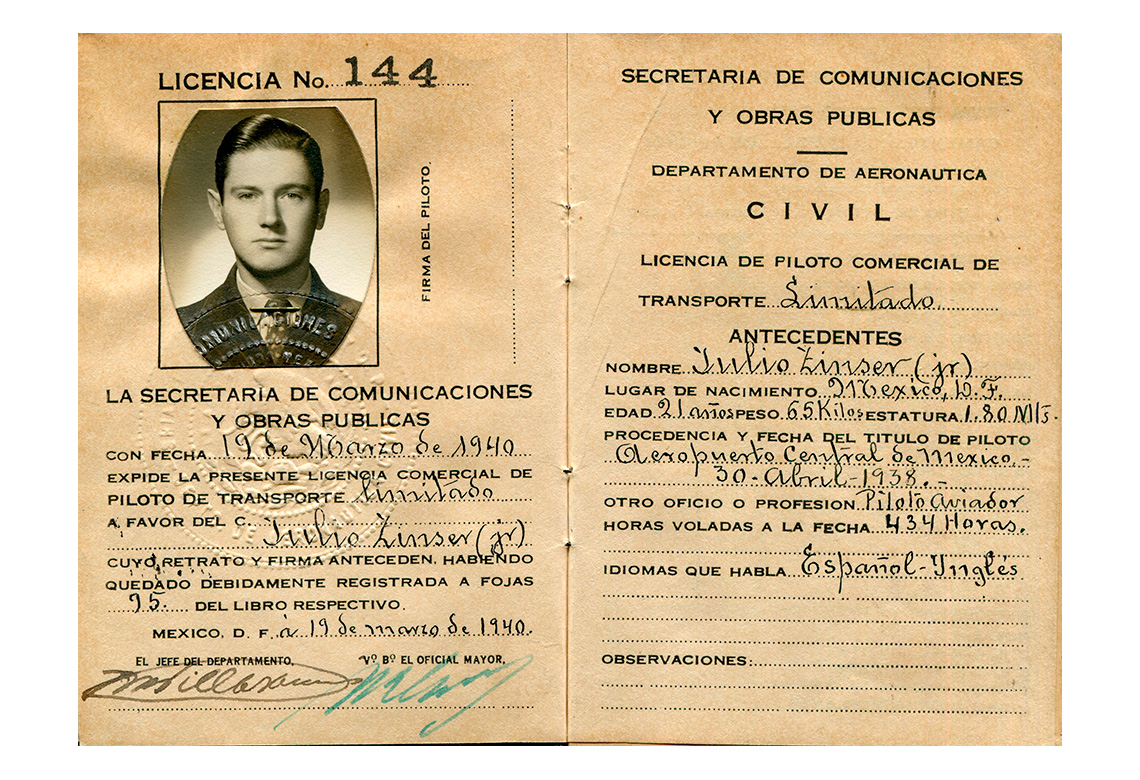 LICENCIA No. 144
FIRMA DEL PILOTO.
LA SECRETARIA DE COMUNICACIONES
Y OBRAS PUBLICAS
CON FECHA 19 de Marzo de 1940
EXPIDE LA PRESENTE LICENCIA COMERCIAL DE
PILOTO DE TRANSPORTE limitado
A FAVOR DEL C.
Julio Zinser (jr)
CUYO RETRATO Y FIRMA ANTECEDEN, HABIENDO
QUEDADO DEBIDAMENTE REGISTRADA A FOJAS
95. DEL LIBRO RESPECTIVO.
MEXICO, D. F. á 19 de marzo de 1940.
EL JEFE DEL DEPARTAMENTO, Vº Bº EL OFICIAL MAYOR,
SECRETARIA DE COMUNICACIONES
Y OBRAS PUBLICAS
DEPARTAMENTO DE AERONAUTICA
CIVIL
LICENCIA DE PILOTO COMERCIAL DE
TRANSPORTE Limitado.
ANTECEDENTES
NOMBRE Julio Zinser (jr)
LUGAR DE NACIMIENTO Mexico, D. F.
EDAD 21 años PESO 65 Kilos ESTATURA 1.80 Mts.
PROCEDENCIA Y FECHA DEL TITULO DE PILOTO
Aeropuerto Central de Mexico.-
30-Abril-1938.-
OTRO OFICIO O PROFESION Piloto Aviador
HORAS VOLADAS A LA FECHA 434 Horas.
IDIOMAS QUE HABLA Español-Ynglés
OBSERVACIONES: